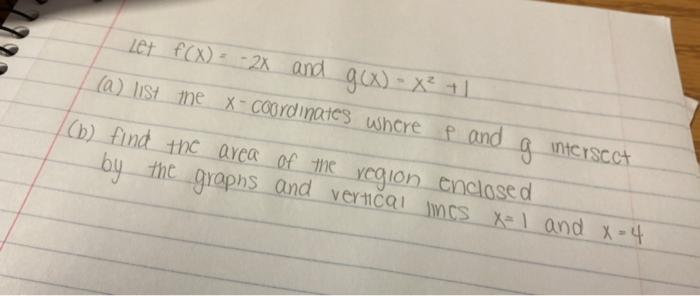 Let f(x) = -2x and g(x) = x² + 1
(a) list the x-coordinates where f and g intersect
(b) find the area of the region enclosed
by the graphs and vertical lines x=1 and x=4